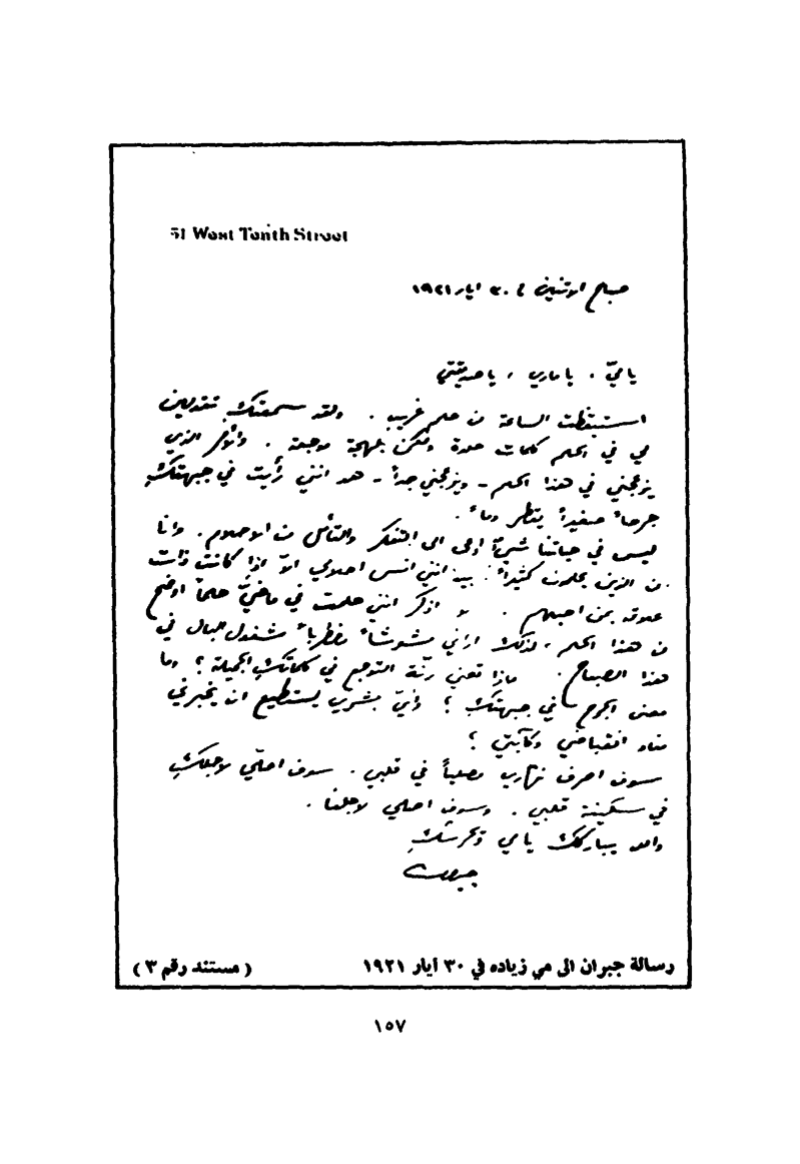 51 West Tenth Street
صباح الاثنين في ٣٠ ايار ١٩٢١
يا ميّ ، يا ماري ، يا صديقتي
استيقظت الساعة من حلم غريب . ولقد سمعتكِ تقولين
لي في الحلم كلمات حلوة ولكن بلهجة موجعة . والأمر الذي
يزعجني في هذا الحلم - ويزعجني جداً - هو انني رأيت في جبهتكِ
جرحاً صغيراً يقطر دماً .
ليس في حياتنا شيءٌ ادعى الى التفكر والتأمل من الاحلام . وانا
من الذين يحلمون كثيراً . بيد انني انسى احلامي الاّ اذا كانت ذات
علاقة بمن احبهم . لا اذكر انني حلمت في ماضيَّ حلماً اوضح
من هذا الحلم ، لذلك اراني مشوشاً مضطرباً مشغول البال في
هذا الصباح . ماذا تعني رنّة التوجع في كلماتكِ الجميلة ؟ وما
معنى الجرح في جبهتكِ ؟ وايّ بشري يستطيع ان يخبرني
مفاد انقباضي وكآبتي ؟
سوف اصرف نهاري مصلياً في قلبي . سوف اصلّي لاجلكِ
في سكينة قلبي . وسوف اصلي لاجلنا .
والله يباركك يا مي ويحرسكِ
جبران
رسالة جبران الى مي زياده في ٣٠ آيار ١٩٢١
( مستند رقم ٣ )
١٥٧